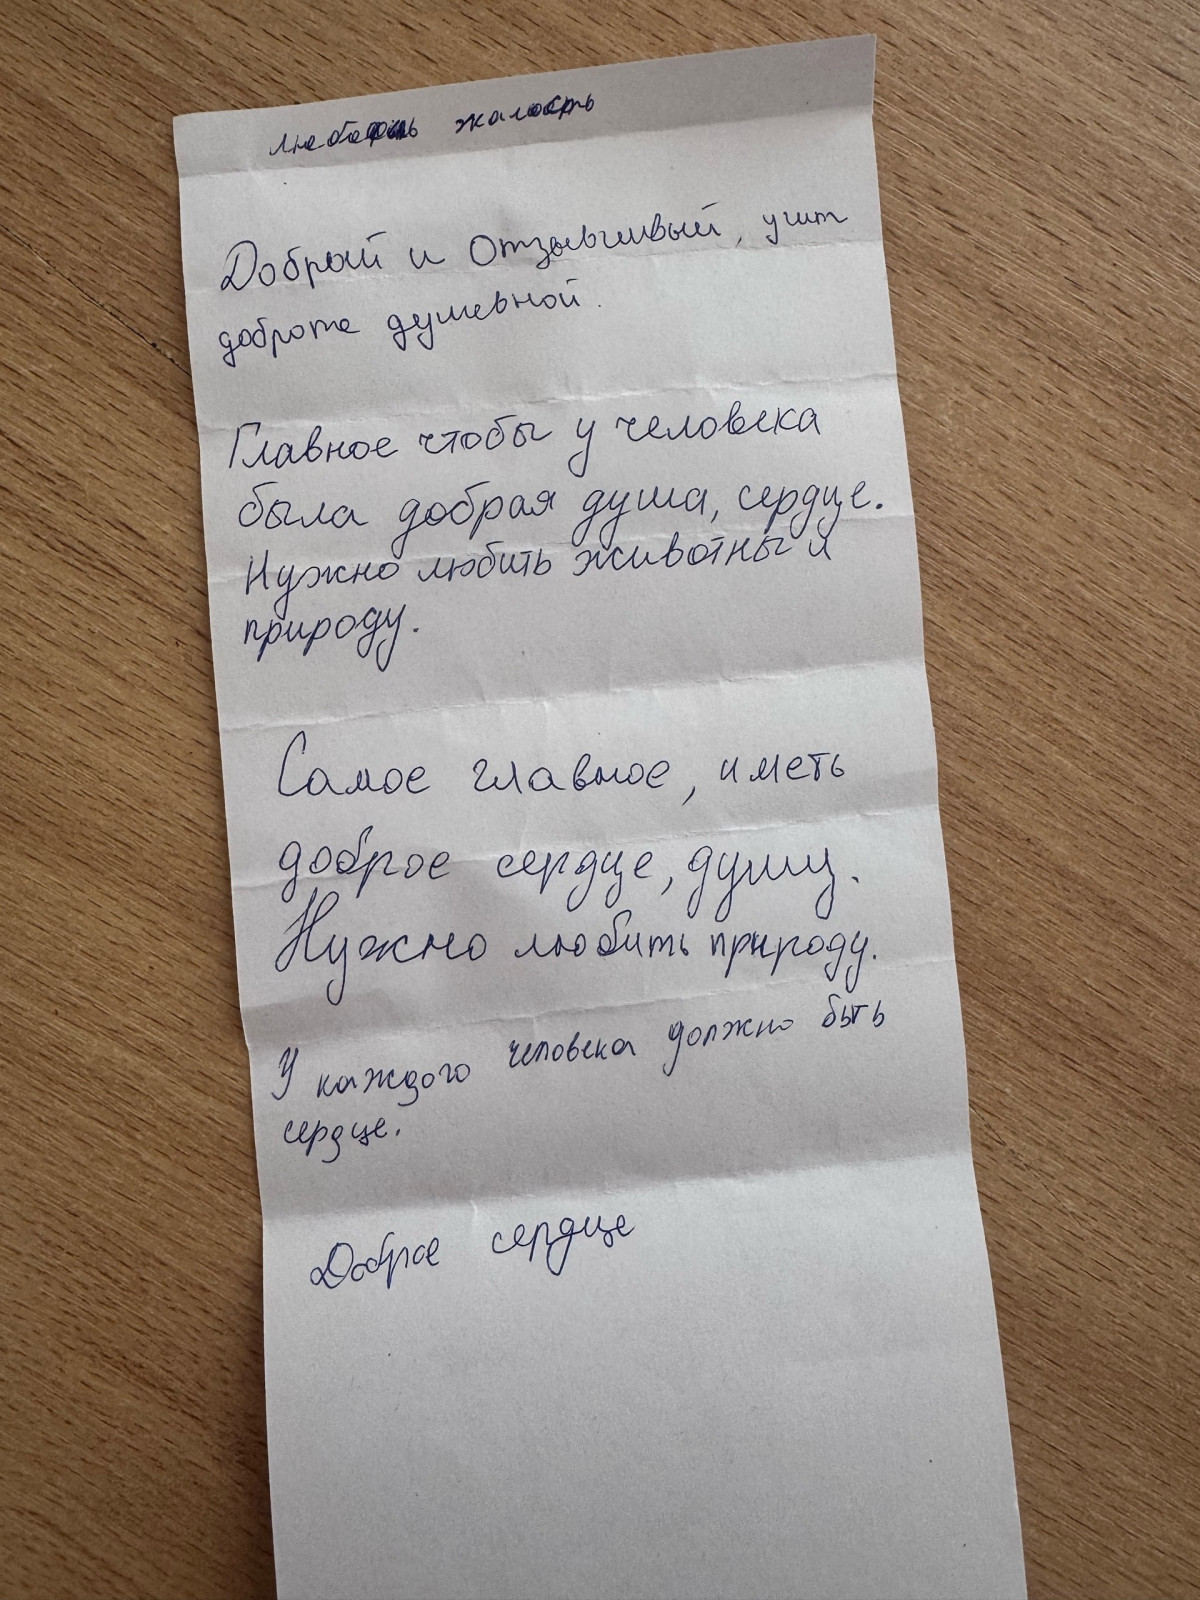 жалость
Добрый и Отзывчивый, учит
доброте душевной.
Главное чтобы у человека
была добрая душа, сердце.
Нужно любить животны и
природу.
Самое главное, иметь
доброе сердце, душу.
Нужно любить природу.
У каждого человека должно быть
сердце.
Доброе сердце